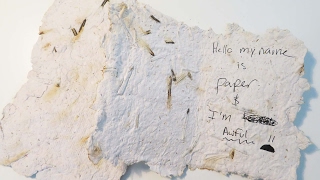 Hello my name
is
paper
&
I'm
Awful !!